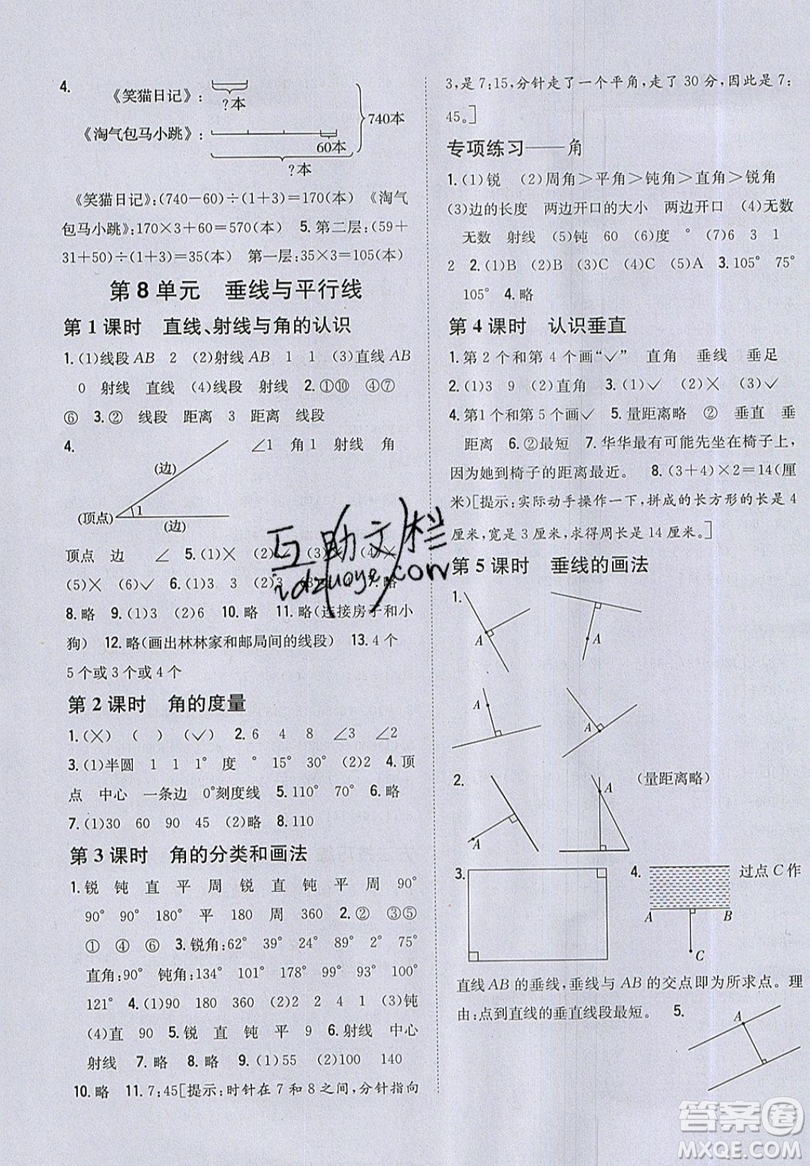 4.
《笑猫日记》:
?本
《淘气包马小跳》:
740本
60本
?本
《笑猫日记》:(740-60)÷(1+3)=170(本) 《淘气
包马小跳》:170×3+60=570(本) 5.第二层:(59+
31+50)÷(1+3)=35(本) 第一层:35×3=105(本)
第8单元 垂线与平行线
第1课时 直线、射线与角的认识
1.(1)线段AB 2 (2)射线AB 1 (3)直线AB
0 射线 直线 线段 2.线段:①⑩ ④⑦
⑥ 3.② 线段 距离 3 距离 线段
4.
(边)
(顶点)
1
(边)
∠1 角1 射线 角
顶点 边 ∠
(5)× (6)×
8.略 9.(1)3 (2)6 10.略 11.略(连接房子和小
狗) 12.略(画出林林家和邮局间的线段) 13.4个
5个或3个或4个
第2课时 角的度量
1.(×) ( ) (✓) 2.6 4 8 ∠3 ∠2
3.(1)半圆 1 1 1° 度 ° 1° (2)略 4.顶
点 中心 一条边 0°刻度线 5.110° 70° 6.略
7.(1)30 60 90 45 (2)略 8.110
第3课时 角的分类和画法
1.锐 钝 直 平 周 锐 钝 直 平 周 90°
90° 90° 180° 直 平 180 周 360 2.②③⑤
① ④ ⑥ 3.锐角:62° 39° 18° 89° 75°
直角:90° 钝角:134° 101° 178° 93° 100°
121° 4.略 5.(1)× (2)× (3)✓ 6.(1)锐 (3)钝
(4)直 90° 锐 直 钝 平 9 7.射线 中心
射线 180° 8.略 9.(1)55 (2)100 140
10.略 11.7:45[提示:时针在7和8之间,分针指向
3,是7:15,分针走了一个平角,走了30分,因此是7:
45。]
专项练习——角
1.(1)锐 (2)周角>平角>钝角>直角>锐角
(3)边的长度 两边开口的大小 两边开口 (4)无数
无数 射线 (5)钝 (6)度 ° (7)6 3 1
2 2.(1)B (2)B (3)C (4)D 3.105° 75°
105° 4.略
第4课时 认识垂直
1.第2个和第4个画“✓” 直角 垂线 垂足
2.(1)3 9 (2)直角 3.(1)✓ (2)× (3)✓
4.第1个和第5个画✓ 5.量距离略 ② 垂直 垂
线 垂足 6.②最短 7.华华最有可能先坐到椅子上,
因为她到椅子的距离最近。 8.(3+4)×2=14(厘
米)[提示:实际动手操作一下,拼成的长方形的长是4
厘米,宽是3厘米,求得周长是14厘米。]
第5课时 垂线的画法
1.
A
A
A
A
2.
A
A
(量距离略)
3.
4.
A B
C
过点C作
直线AB的垂线,垂线与AB的交点即为所求点。理
由:点到直线的垂直线段最短。 5.
A
互助文栏
idzuoye.con
答案圈
MXQE.COM